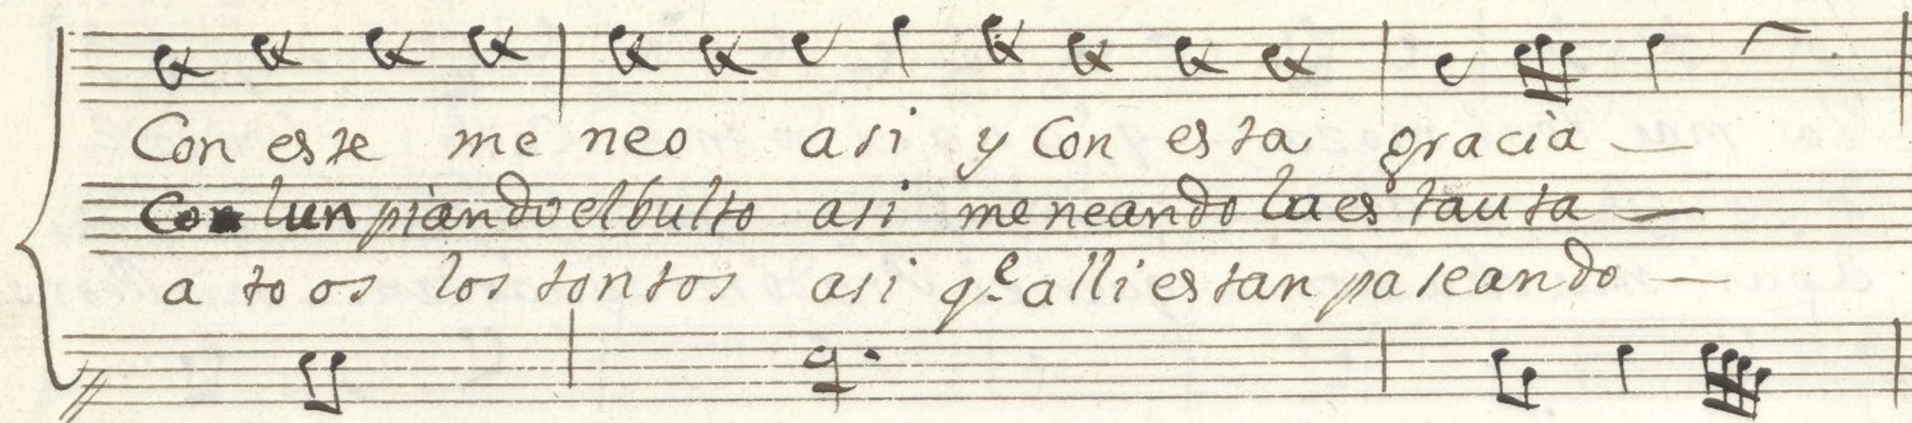 Con este meneo asi y Con esta gracia
Con lunpiando el bulto asi meneando la estauta
a to os los tontos asi q.e alli estan paseando